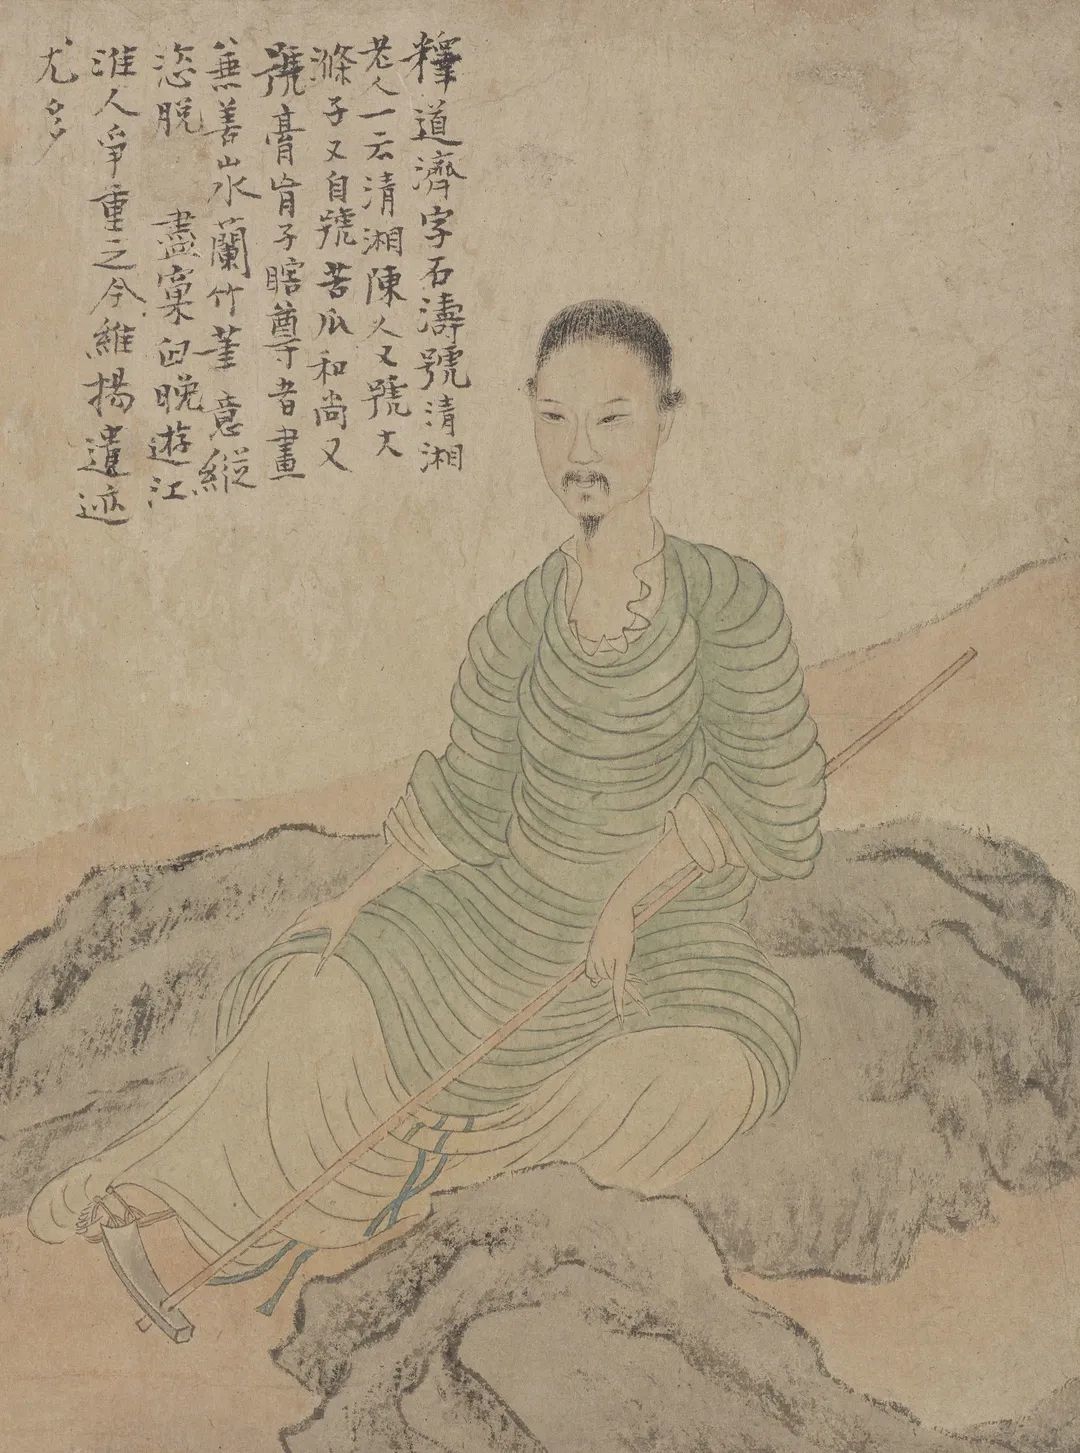 釋道濟字石濤號清湘
老人一云清湘陳人又號大
滌子又自號苦瓜和尚又
號膏肓子瞎尊者畫
兼善山水蘭竹筆意縱
恣脫盡窠臼晚遊江
淮人爭重之今維揚遺迹
尤多